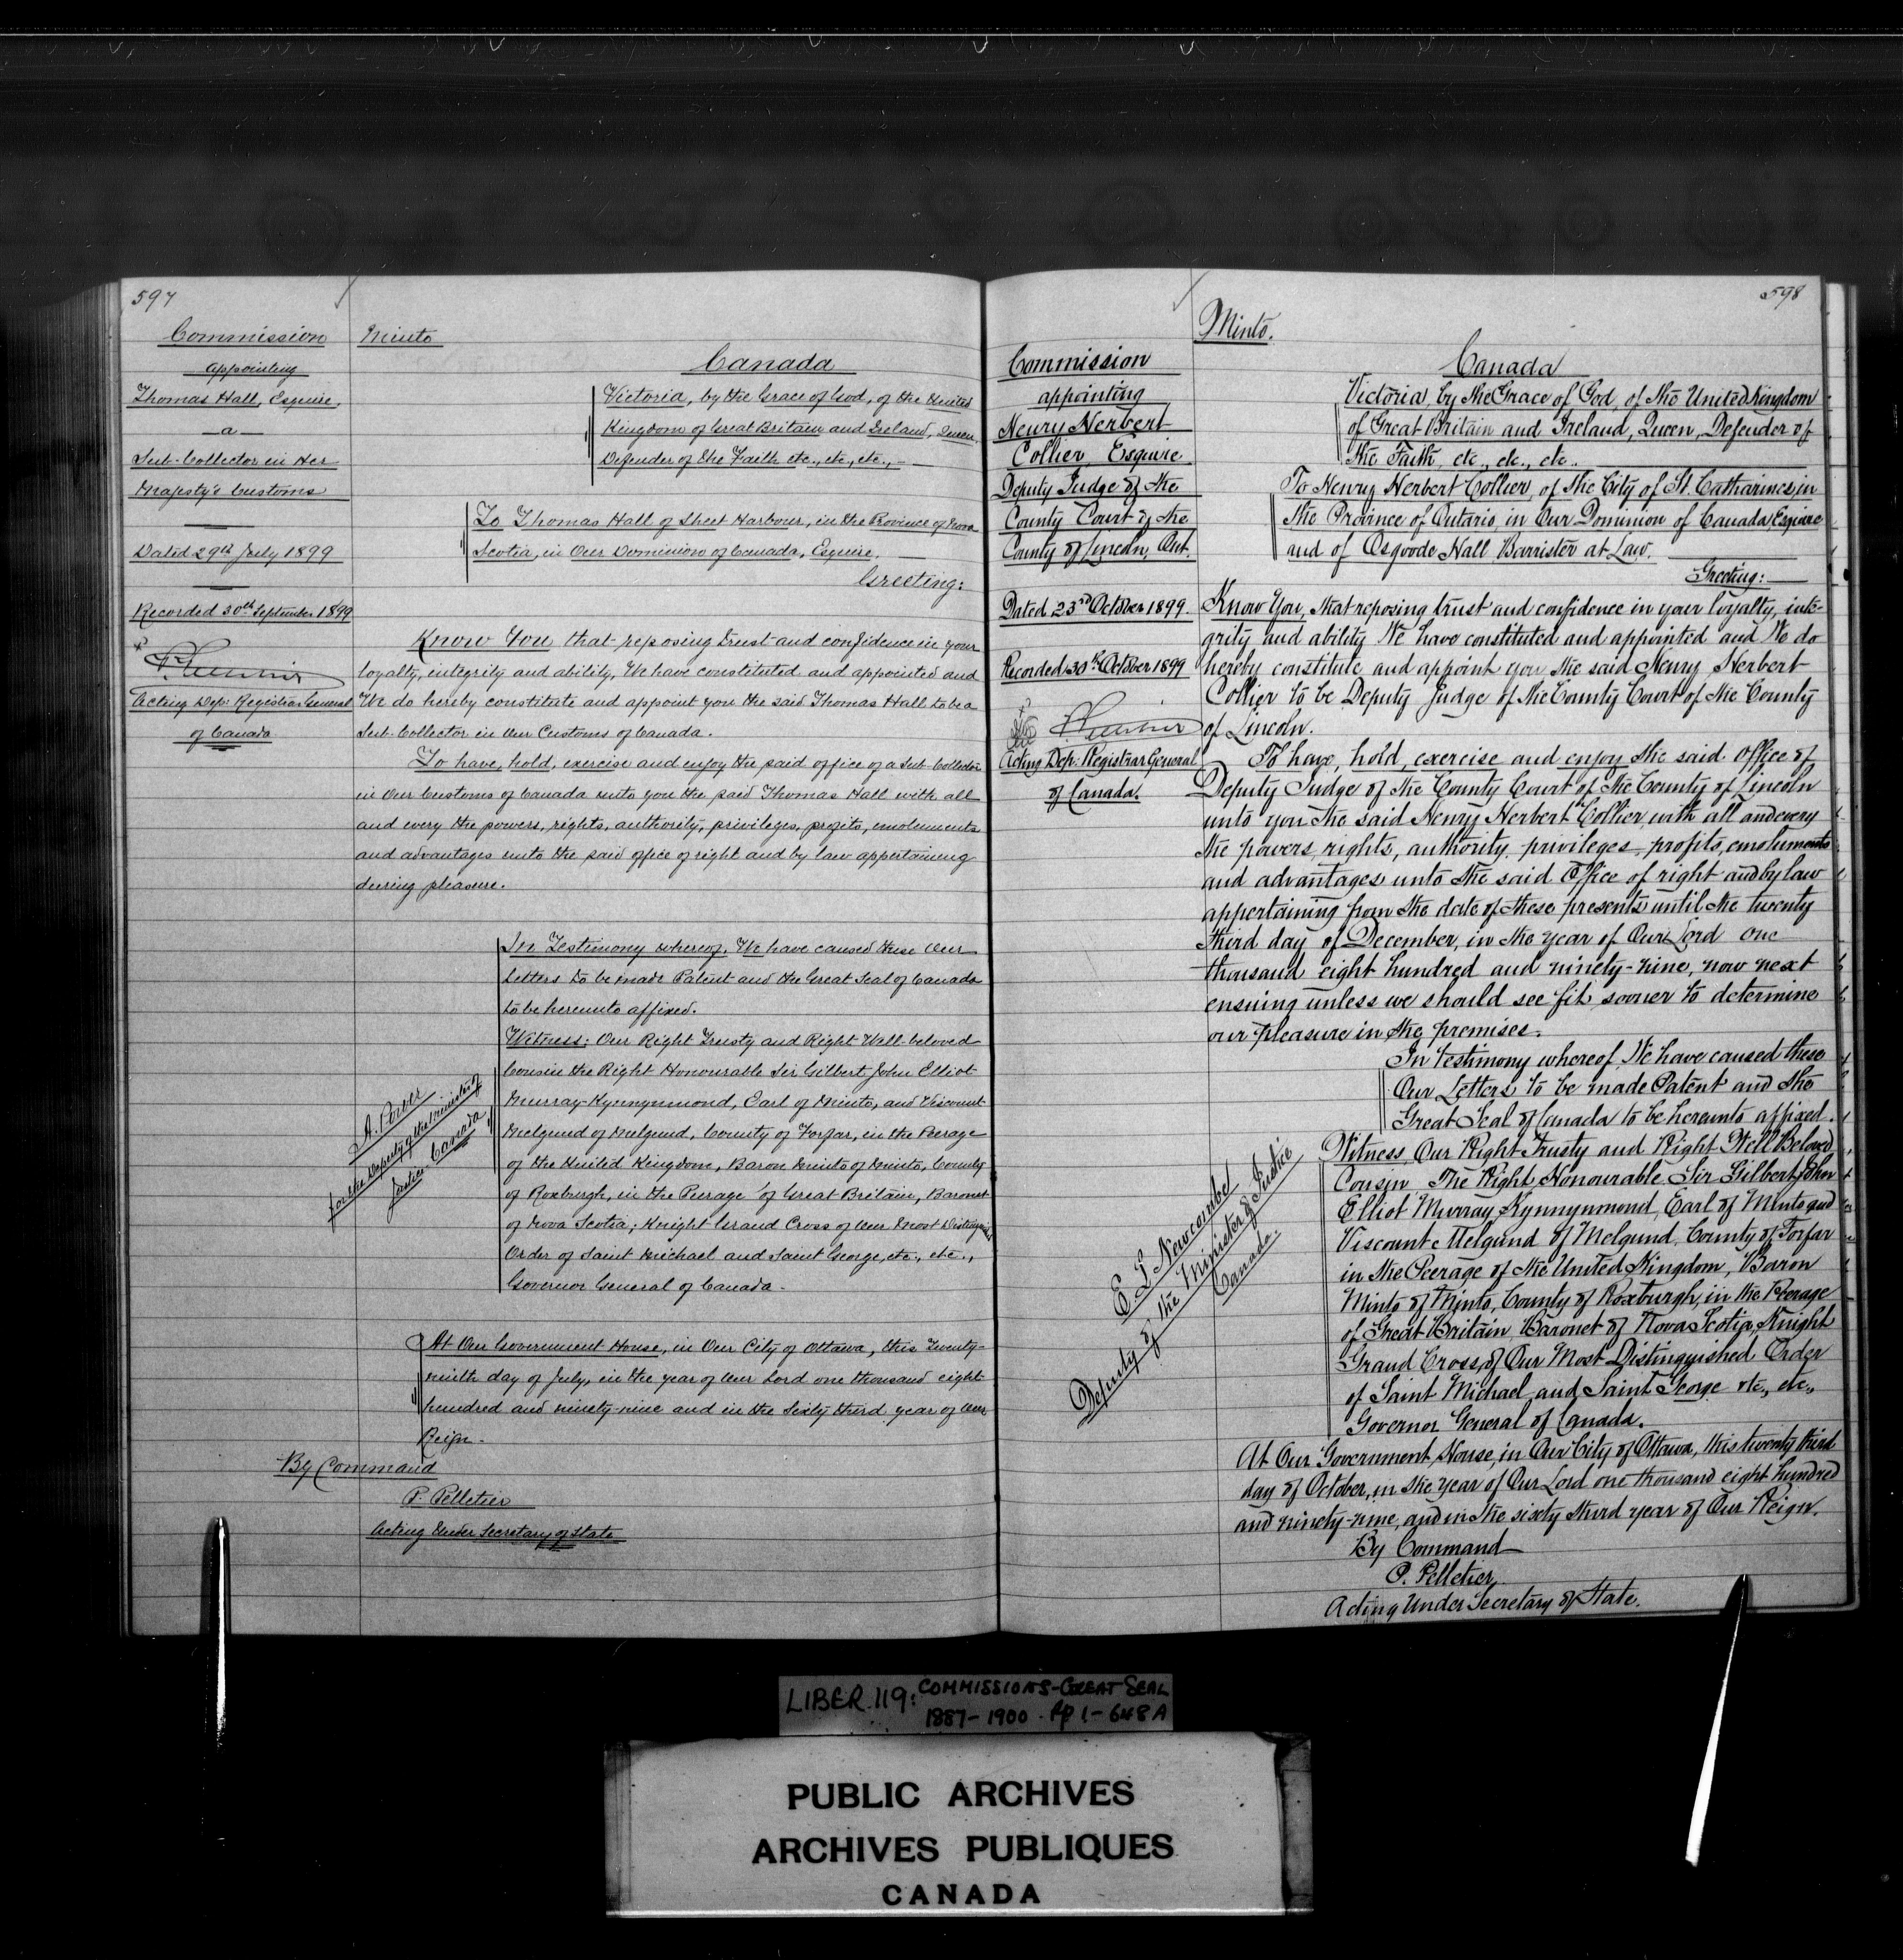 597
Commission
appointing
Thomas Hall, Esquire,
a
Sub-Collector in Her
Majesty's Customs
Dated 29th July 1899
Recorded 30th September 1899
Acting Dep: Registrar General
of Canada
Minto
Canada
Victoria, by the Grace of God, of the United
Kingdom of Great Britain and Ireland, Queen,
Defender of the Faith etc., etc., etc.,
To Thomas Hall of Sheet Harbour, in the Province of Nova
Scotia, in Our Dominion of Canada, Esquire,
Greeting:
Know You that reposing trust and confidence in your
loyalty, integrity and ability, We have constituted and appointed and
We do hereby constitute and appoint you the said Thomas Hall to be a
Sub-Collector in Our Customs of Canada.
To have, hold, exercise and enjoy the said office of a Sub-Collector
in Our Customs of Canada unto you the said Thomas Hall with all
and every the powers, rights, authority, privileges, profits, emoluments
and advantages unto the said office of right and by law appertaining
during pleasure.
In Testimony whereof, We have caused these Our
Letters to be made Patent and the Great Seal of Canada
to be hereunto affixed.
Witness: Our Right Trusty and Right Well-beloved
Cousin the Right Honourable Sir Gilbert John Elliot
Murray-Kynnynmond, Earl of Minto, and Viscount
Melgund of Melgund, County of Forfar, in the Peerage
of the United Kingdom, Baron Minto of Minto, County
of Roxburgh, in the Peerage of Great Britain, Baronet
of Nova Scotia; Knight Grand Cross of Our Most Distinguished
Order of Saint Michael and Saint George, etc., etc.,
Governor General of Canada.
A. Power
for the Deputy of the Minister of
Justice Canada
At Our Government House, in Our City of Ottawa, this Twenty-
ninth day of July, in the year of Our Lord one thousand eight
hundred and ninety-nine and in the Sixty third year of Our
Reign.
By Command
P. Pelletier
Acting Under Secretary of State
598
Commission
appointing
Henry Herbert
Collier, Esquire
Deputy Judge of the
County Court of the
County of Lincoln, Ont.
Dated 23rd October 1899.
Recorded 30th October 1899
Acting Dep: Registrar General
of Canada.
Minto.
Canada
Victoria by the Grace of God, of the United Kingdom
of Great Britain and Ireland, Queen, Defender of
the Faith, etc., etc., etc.
To Henry Herbert Collier, of the City of St. Catharines, in
the Province of Ontario, in Our Dominion of Canada Esquire
and of Osgoode Hall, Barrister at Law.
Greeting:
Know You, that reposing trust and confidence in your loyalty, inte-
grity and ability We have constituted and appointed and We do
hereby constitute and appoint you the said Henry Herbert
Collier to be Deputy Judge of the County Court of the County
of Lincoln.
To have, hold, exercise and enjoy the said office of
Deputy Judge of the County Court of the County of Lincoln
unto you the said Henry Herbert Collier, with all and every
the powers, rights, authority, privileges, profits, emoluments
and advantages unto the said Office of right and by law
appertaining from the date of these presents until the twenty
third day of December, in the year of Our Lord one
thousand eight hundred and ninety-nine, now next
ensuing unless we should see fit sooner to determine
our pleasure in the premises.
In Testimony whereof, We have caused these
Our Letters to be made Patent and the
Great Seal of Canada to be hereunto affixed.
Witness, Our Right Trusty and Right Well Beloved
Cousin The Right Honourable Sir Gilbert John
Elliot Murray Kynnynmond, Earl of Minto and
Viscount Melgund of Melgund, County of Forfar
in the Peerage of the United Kingdom, Baron
Minto of Minto, County of Roxburgh, in the Peerage
of Great Britain, Baronet of Nova Scotia, Knight
Grand Cross, of Our Most Distinguished Order
of Saint Michael and Saint George etc., etc.,
Governor General of Canada.
E. L. Newcombe
Deputy of the Minister of Justice
Canada.
At Our Government House, in Our City of Ottawa, this twenty third
day of October, in the year of Our Lord one thousand eight hundred
and ninety-nine, and in the sixty third year of Our Reign.
By Command
P. Pelletier
Acting Under Secretary of State.
LIBER 119: COMMISSIONS-GREAT SEAL
1887-1900. Pp 1-648A
PUBLIC ARCHIVES
ARCHIVES PUBLIQUES
CANADA